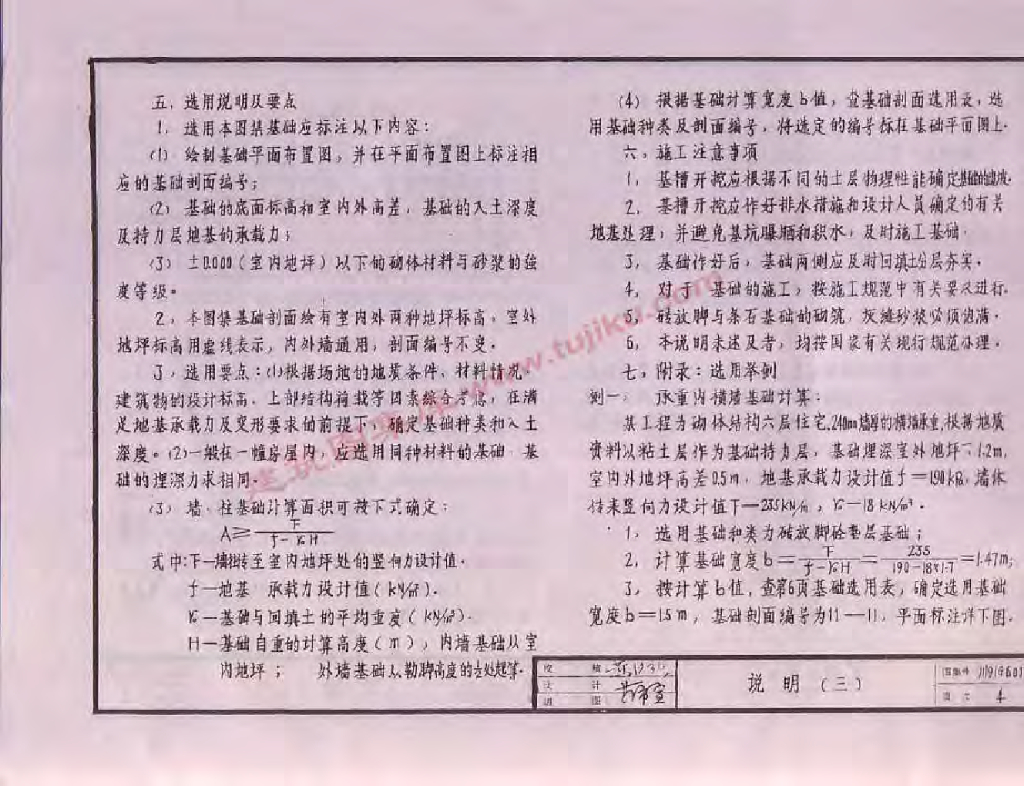 五、选用说明及要点
1、选用本图集基础应标注以下内容：
(1) 绘制基础平面布置图，并在平面布置图上标注相
应的基础剖面编号；
(2) 基础的底面标高和室内外高差，基础的入土深度
及持力层地基的承载力；
(3) ±0.000（室内地坪）以下的砌体材料与砂浆的强
度等级。
2、本图集基础剖面绘有室内外两种地坪标高，室外
地坪标高用虚线表示，内外墙通用，剖面编号不变。
3、选用要点：(1)根据场地的地质条件、材料情况、
建筑物的设计标高、上部结构荷载等因素综合考虑，在满
足地基承载力及变形要求的前提下，确定基础种类和入土
深度。(2)一般在一幢房屋内，应选用同种材料的基础，基
础的埋深力求相同。
(3) 墙、柱基础计算面积可按下式确定：
A≥F/(f-γGH)
式中：F—墙柱传至室内地坪处的竖向力设计值。
f—地基 承载力设计值（kN/m²）。
γG—基础与回填土的平均重度（kN/m³）。
H—基础自重的计算高度（m），内墙基础从室
内地坪； 外墙基础从勒脚高度的 处起算。
(4) 根据基础计算宽度b值，查基础剖面选用表，选
用基础种类及剖面编号，将选定的编号标在基础平面图上。
六、施工注意事项
1、基槽开挖应根据不同的土层物理性能确定基础的坡度。
2、基槽开挖应作好排水措施和设计人员确定的有关
地基处理，并避免基坑曝晒和积水，及时施工基础。
3、基础作好后，基础两侧应及时回填土分层夯实。
4、对于 基础的施工，按施工规范中有关要求进行。
5、砖放脚与条石基础的砌筑，灰缝砂浆必须饱满。
6、本说明未述及者，均按国家有关现行规范办理。
七、附录：选用举例
例一、 承重内横墙基础计算：
某工程为砌体结构六层住宅，240mm墙厚的横墙承重，根据地质
资料以粘土层作为基础持力层，基础埋深室外地坪下1.2m，
室内外地坪高差0.5m，地基承载力设计值f=190kPa，墙体
传来竖向力设计值F=235kN/m，γG=18kN/m³。
1、选用基础种类为砖放脚砼垫层基础；
2、计算基础宽度b=F/(f-γGH)=235/(190-18×1.7)=1.47m；
3、按计算b值，查第6页基础选用表，确定选用基础
宽度b=1.5m，基础剖面编号为11—11，平面标注详下图。
校 核
设 计
制 图
说 明（三）
图集号 川91G601
页 次 4
www.tujiku.com